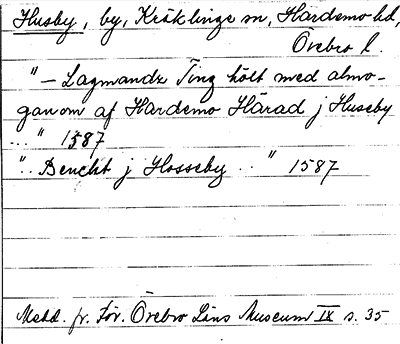 Husby, by, Kräklinge sn, Hardemo hd,
Örebro l.
"— Lagmandz Ting hölt med almo-
ganom af Hardemo Härad j Huseby
..." 1587
".. Benckt j Hosseby .." 1587
Medd. fr. För. Örebro Läns Museum IX s. 35